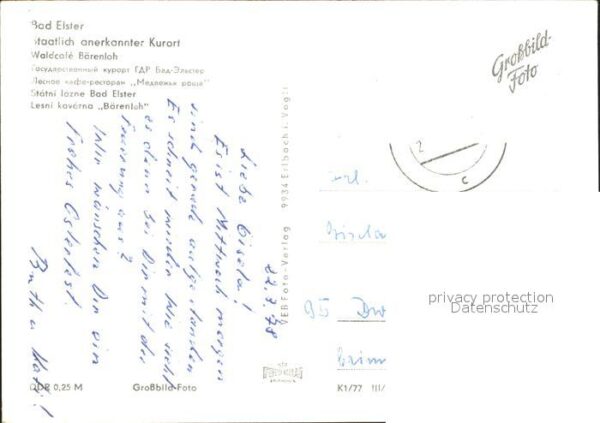 Bad Elster
Staatlich anerkannter Kurort
Waldcafé Bärenloh
Государственный курорт ГДР Бад-Эльстер
Лесное кафе-ресторан „Медвежья роща"
Státní lázně Bad Elster
Lesní kavárna „Bärenloh"
Großbild-
Foto
22.3.78
Liebe Gisela!
Es ist Mittwoch morgen
sind gerade aufgestanden
Es schneit wieder. Wie sieht
es denn bei Dir mit der
Feuerung aus?
Wir wünschen Dir ein
frohes Osterfest.
Ruth u.
VEB Foto-Verlag 9934 Erlbach i. Vogtl
Frl.
Gisela
95
privacy protection
Datenschutz
DDR 0,25 M
Großbild-Foto
K1/77 III/